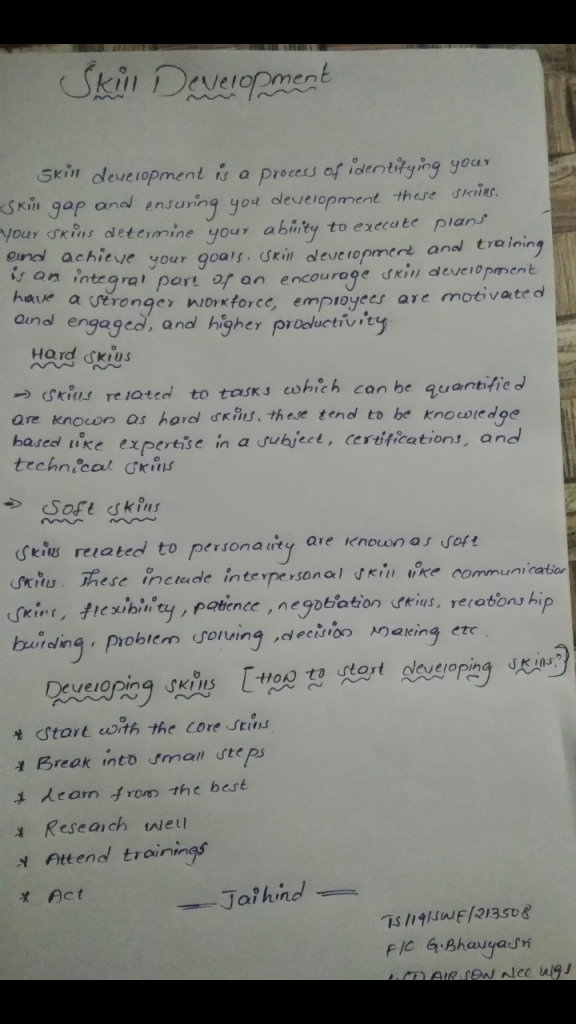 Skill Development
Skill development is a process of identifying your
skill gap and ensuring you development these skills.
Your skills determine your ability to execute plans
and achieve your goals. Skill development and training
is an integral part of an encourage skill development
have a stronger workforce, employees are motivated
and engaged, and higher productivity.
Hard skills
→ skills related to tasks which can be quantified
are known as hard skills. these tend to be knowledge
based like expertise in a subject, certifications, and
technical skills
→ Soft skills
skills related to personality are known as soft
skills. These include interpersonal skill like communication
skills, flexibility, patience, negotiation skills, relationship
building, problem solving, decision Making etc.
Developing skills [How to start developing skills?}
* start with the core skills
* Break into small steps
* Learn from the best
* Research well
* Attend trainings
* Act
— Jaihind —
TS/19/SWF/213508
F/C G.Bhavya.Sri
AIR SQN NCC WGS